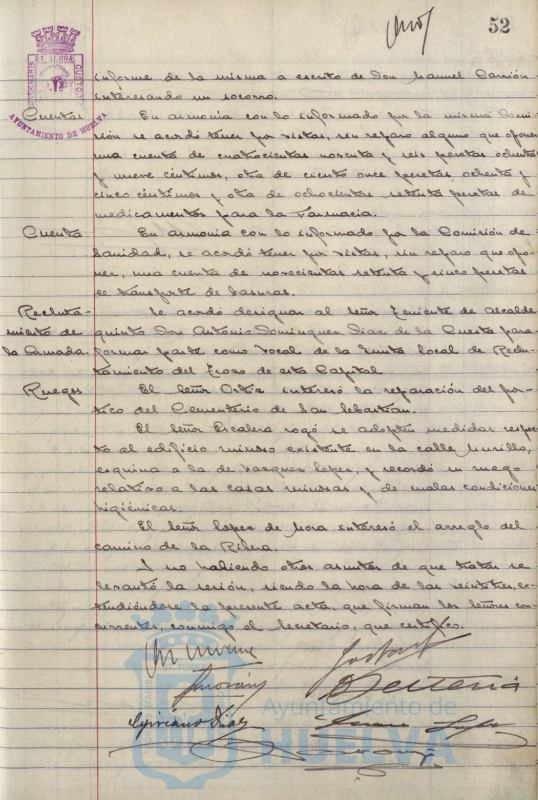 52
informe de la misma a escrito de Don Manuel Carrión
interesando un socorro.
Cuentas
En armonía con lo informado por la misma Comi-
sión se acordó tener por vistas, sin reparo alguno que oponer
una cuenta de cuatrocientas noventa y seis pesetas ochenta
y nueve céntimos, otra de ciento once pesetas ochenta y
cinco céntimos y otra de ochocientas setenta pesetas de
medicamentos para la Farmacia.
Cuenta
En armonía con lo informado por la Comisión de
Sanidad, se acordó tener por vista, sin reparo que opo-
ner, una cuenta de novecientas setenta y cinco pesetas
de transporte de basuras.
Recluta-
miento de
la Armada.
Se acordó designar al Señor Teniente de Alcalde
quinto Don Antonio Dominguez Diaz de la Cuesta para
formar parte como Vocal de la Junta local de Reclu-
tamiento del Trozo de esta Capital
Ruegos
El Señor Ortiz interesó la reparación del pór-
tico del Cementerio de San Sebastian.
El Señor Escalera rogó se adopten medidas respec-
to al edificio ruinoso existente en la calle Murillo,
esquina a la de Vazquez Lopez, y recordó su ruego
relativo a las casas ruinosas y de malas condiciones
higiénicas.
El Señor Lopez de Mora interesó el arreglo del
camino de la Ribera.
Y no habiendo otros asuntos de que tratar se
levantó la sesión, siendo la hora de las veintitres, ex-
tendiéndose la presente acta, que firman los señores con-
currentes, conmigo el Secretario, que certifico.
Cipriano Diaz
AYUNTAMIENTO DE HUELVA
Ayuntamiento de
HUELVA